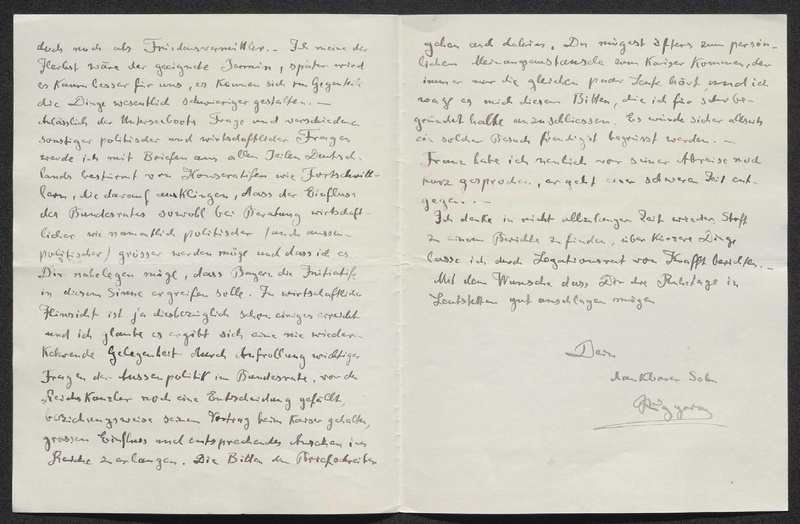 doch noch als Friedensvermittler. – Ich meine der
Herbst wäre der geeignete Termin, später wird
es kaum besser für uns, es können sich im Gegenteil
die Dinge wesentlich schwieriger gestalten. –
Anlässlich der Unterseeboots Frage und verschiedener
sonstiger politischer und wirtschaftlicher Fragen
werde ich mit Briefen aus allen Teilen Deutsch-
lands bestürmt von Konservatifen wie Fortschritt-
lern, die darauf ausklingen, dass der Einfluss
des Bundesrates sowohl bei Beratung wirtschaft-
licher wie namentlich politischer (auch aussen-
politischer) grösser werden möge und dass ich es
Dir nahelegen möge, dass Bayern die Initiatife
in diesem Sinne ergreifen solle. In wirtschaftlicher
Hinsicht ist ja diesbezüglich schon einiges erreicht
und ich glaube es ergibt sich eine nie wieder-
kehrende Gelegenheit durch Aufrollung wichtiger
Fragen der Aussenpolitik im Bundesrate, vor der
Reichskanzler noch eine Entscheidung gefällt,
beziehungsweise seinen Vortrag beim Kaiser gehalten,
grossen Einfluss und entsprechendes Ansehen im
Reiche zu erlangen. Die Bitten der Briefschreiber
gehen auch dahin, Du mögest öfters zum persön-
lichen Meinungsaustausche zum Kaiser kommen, der
immer nur die gleichen paar Leute hört, und ich
wage es mich diesen Bitten, die ich für sehr be-
gründet halte anzuschliessen. Es würde sicher allseits
ein solcher Besuch freudigst begrüsst werden. –
habe ich neulich vor seiner Abreise noch
kurz gesprochen, er geht einer schweren Zeit ent-
gegen. –
Ich denke in nicht allzulanger Zeit wieder Stoff
zu einem Berichte zu finden, über kürzere Dinge
lasse ich durch Legationsrat von Krafft berichten. –
Mit dem Wunsche dass Dir die Ruhetage in
Leutstetten gut anschlagen mögen
Dein
dankbarer Sohn